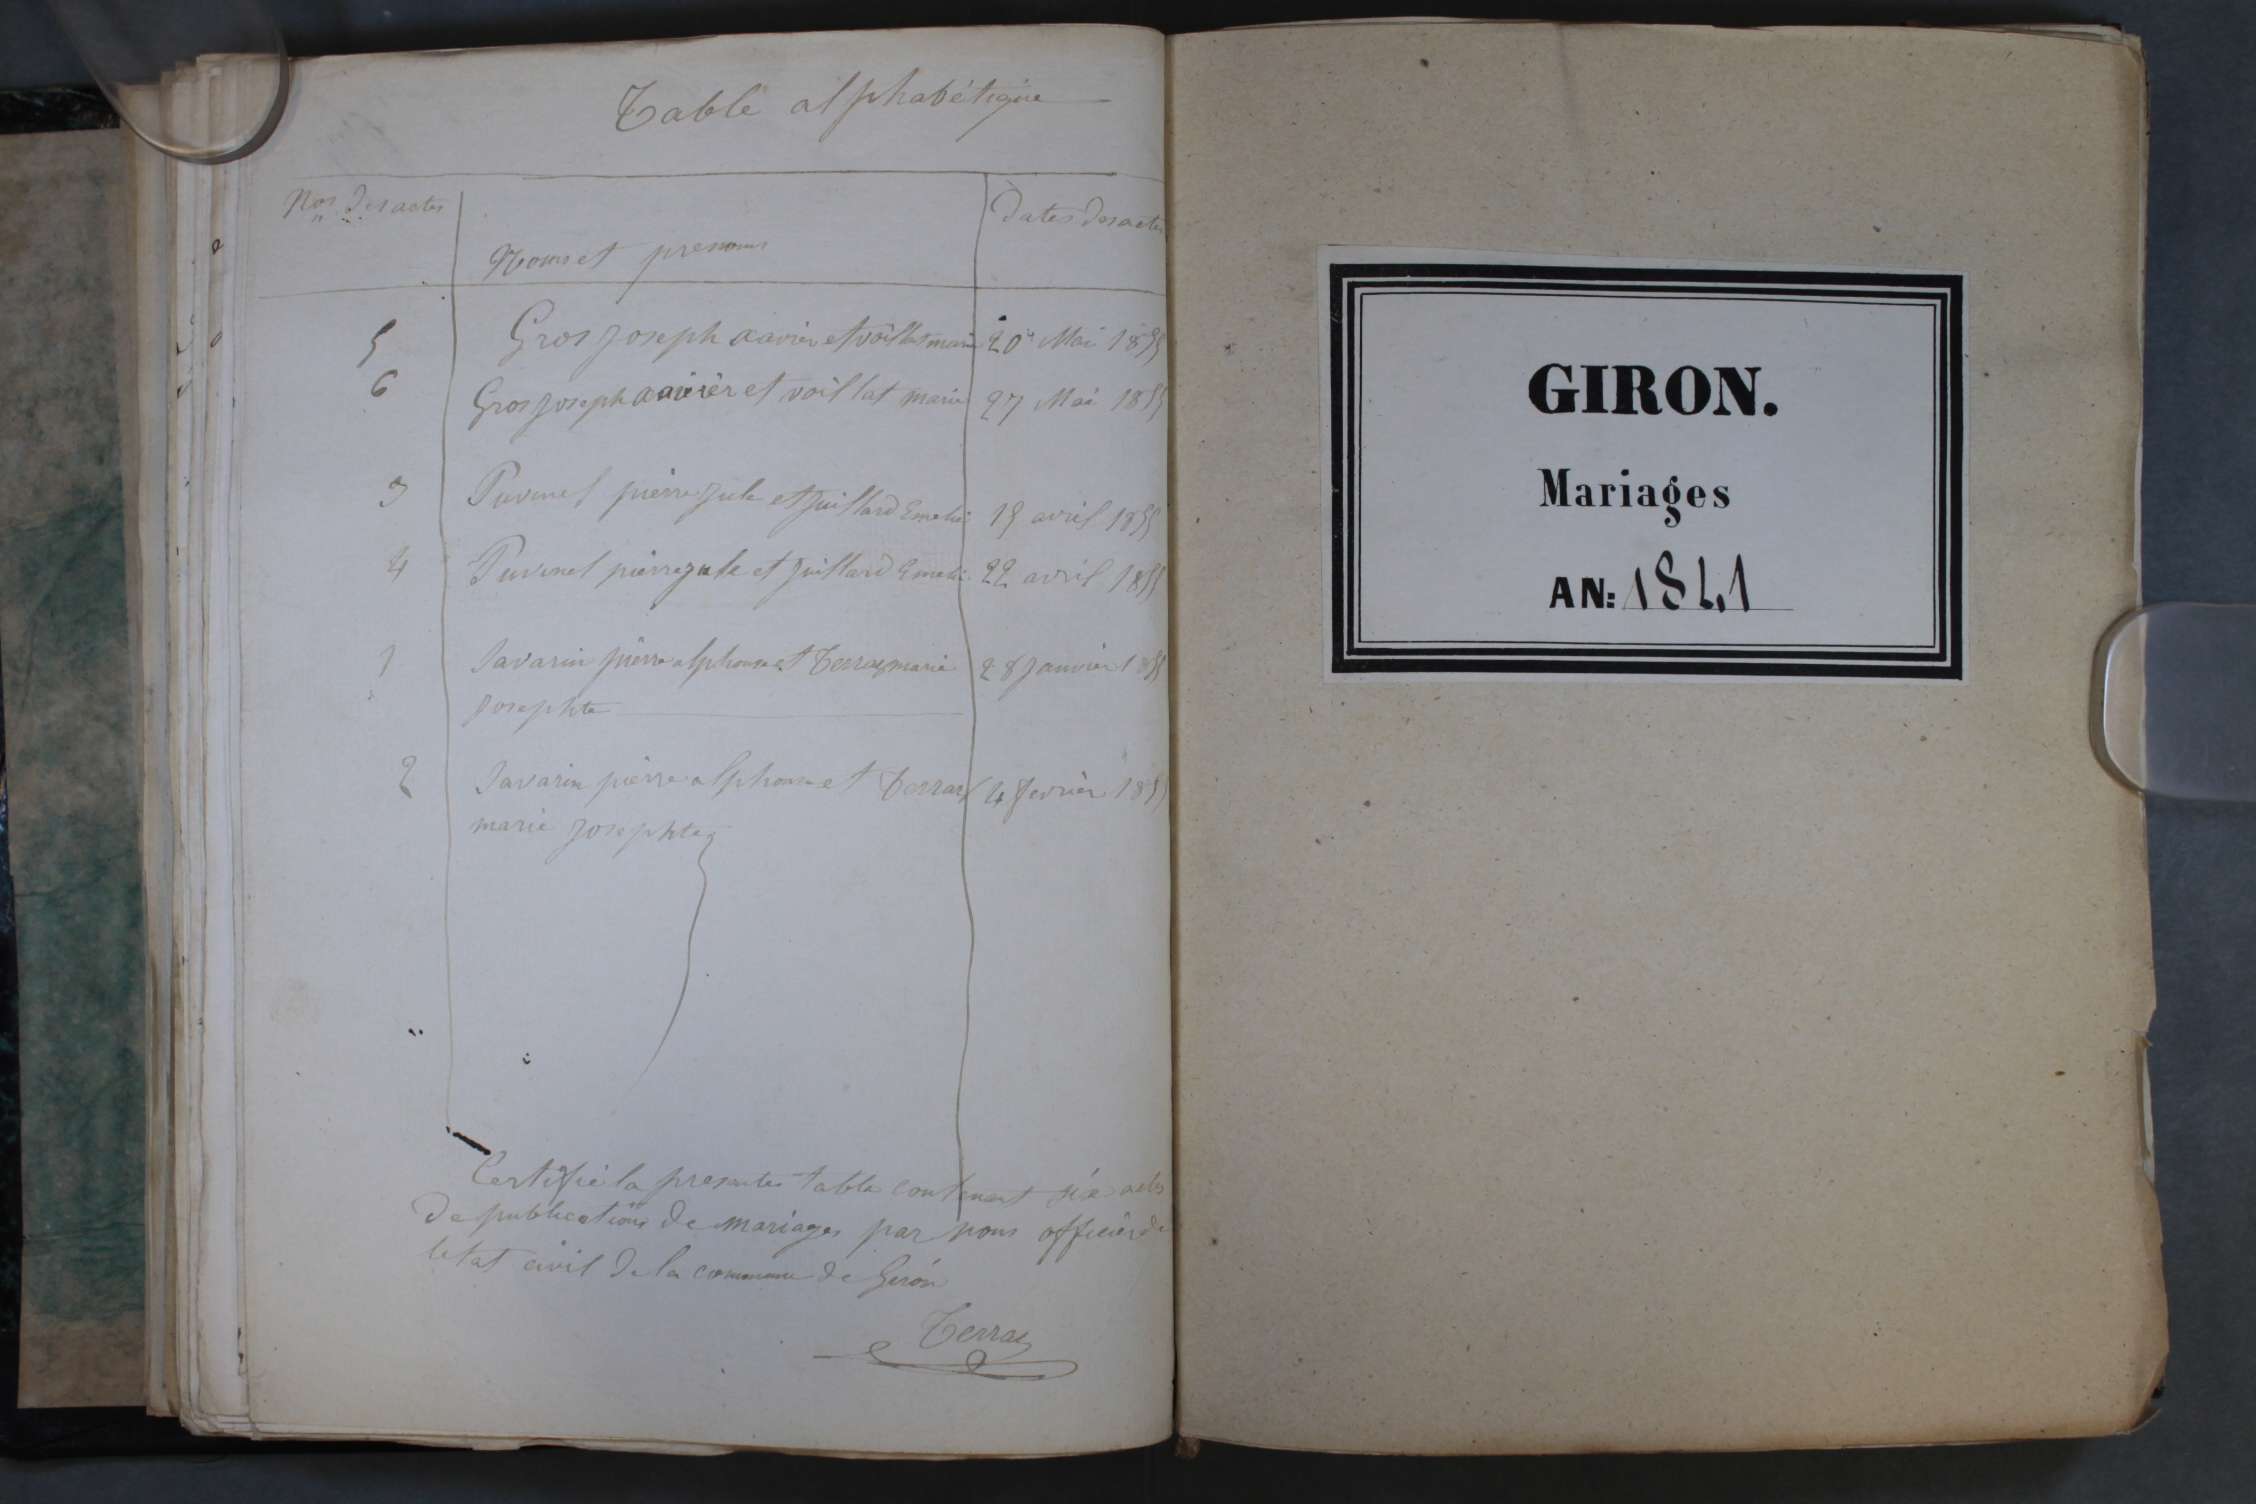 Table alphabétique
Nos des actes
Noms et prenoms
Dates des actes
5 Gros joseph xavier et voillat marie 20 Mai 1855
6 Gros joseph xavier et voillat marie 27 Mai 1855
3 Puvinel pierre jule et juillard Emelie 15 avril 1855
4 Puvinel pierre jule et juillard Emelie 22 avril 1855
1 Savarin pierre alphonse et Terraz marie 28 janvier 1855
josephte
2 Savarin pierre alphonse et Terraz 4 fevrier 1855
marie josephte
Certifié la presentes table contenant six actes
De publications de mariages par nous officier de
letat civil de la commune de Giron
Terraz
GIRON.
Mariages
AN: 1841